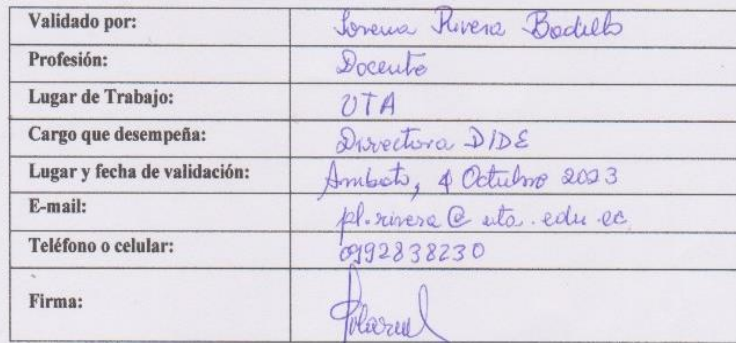 Validado por: Lorena Rivera Badillo
Profesión: Docente
Lugar de Trabajo: UTA
Cargo que desempeña: Directora DIDE
Lugar y fecha de validación: Ambato, 4 Octubre 2023
E-mail: pl.rivera@uta.edu.ec
Teléfono o celular: 0992838230
Firma: